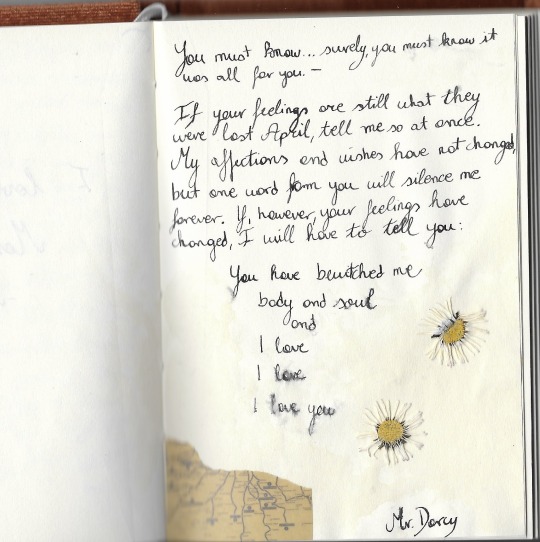 You must know... surely, you must know it
was all for you. —
If your feelings are still what they
were last April, tell me so at once.
My affections and wishes have not changed,
but one word from you will silence me
forever. If, however, your feelings have
changed, I will have to tell you:
You have bewitched me
body and soul
and
I love
I love
I love you
Mr. Darcy